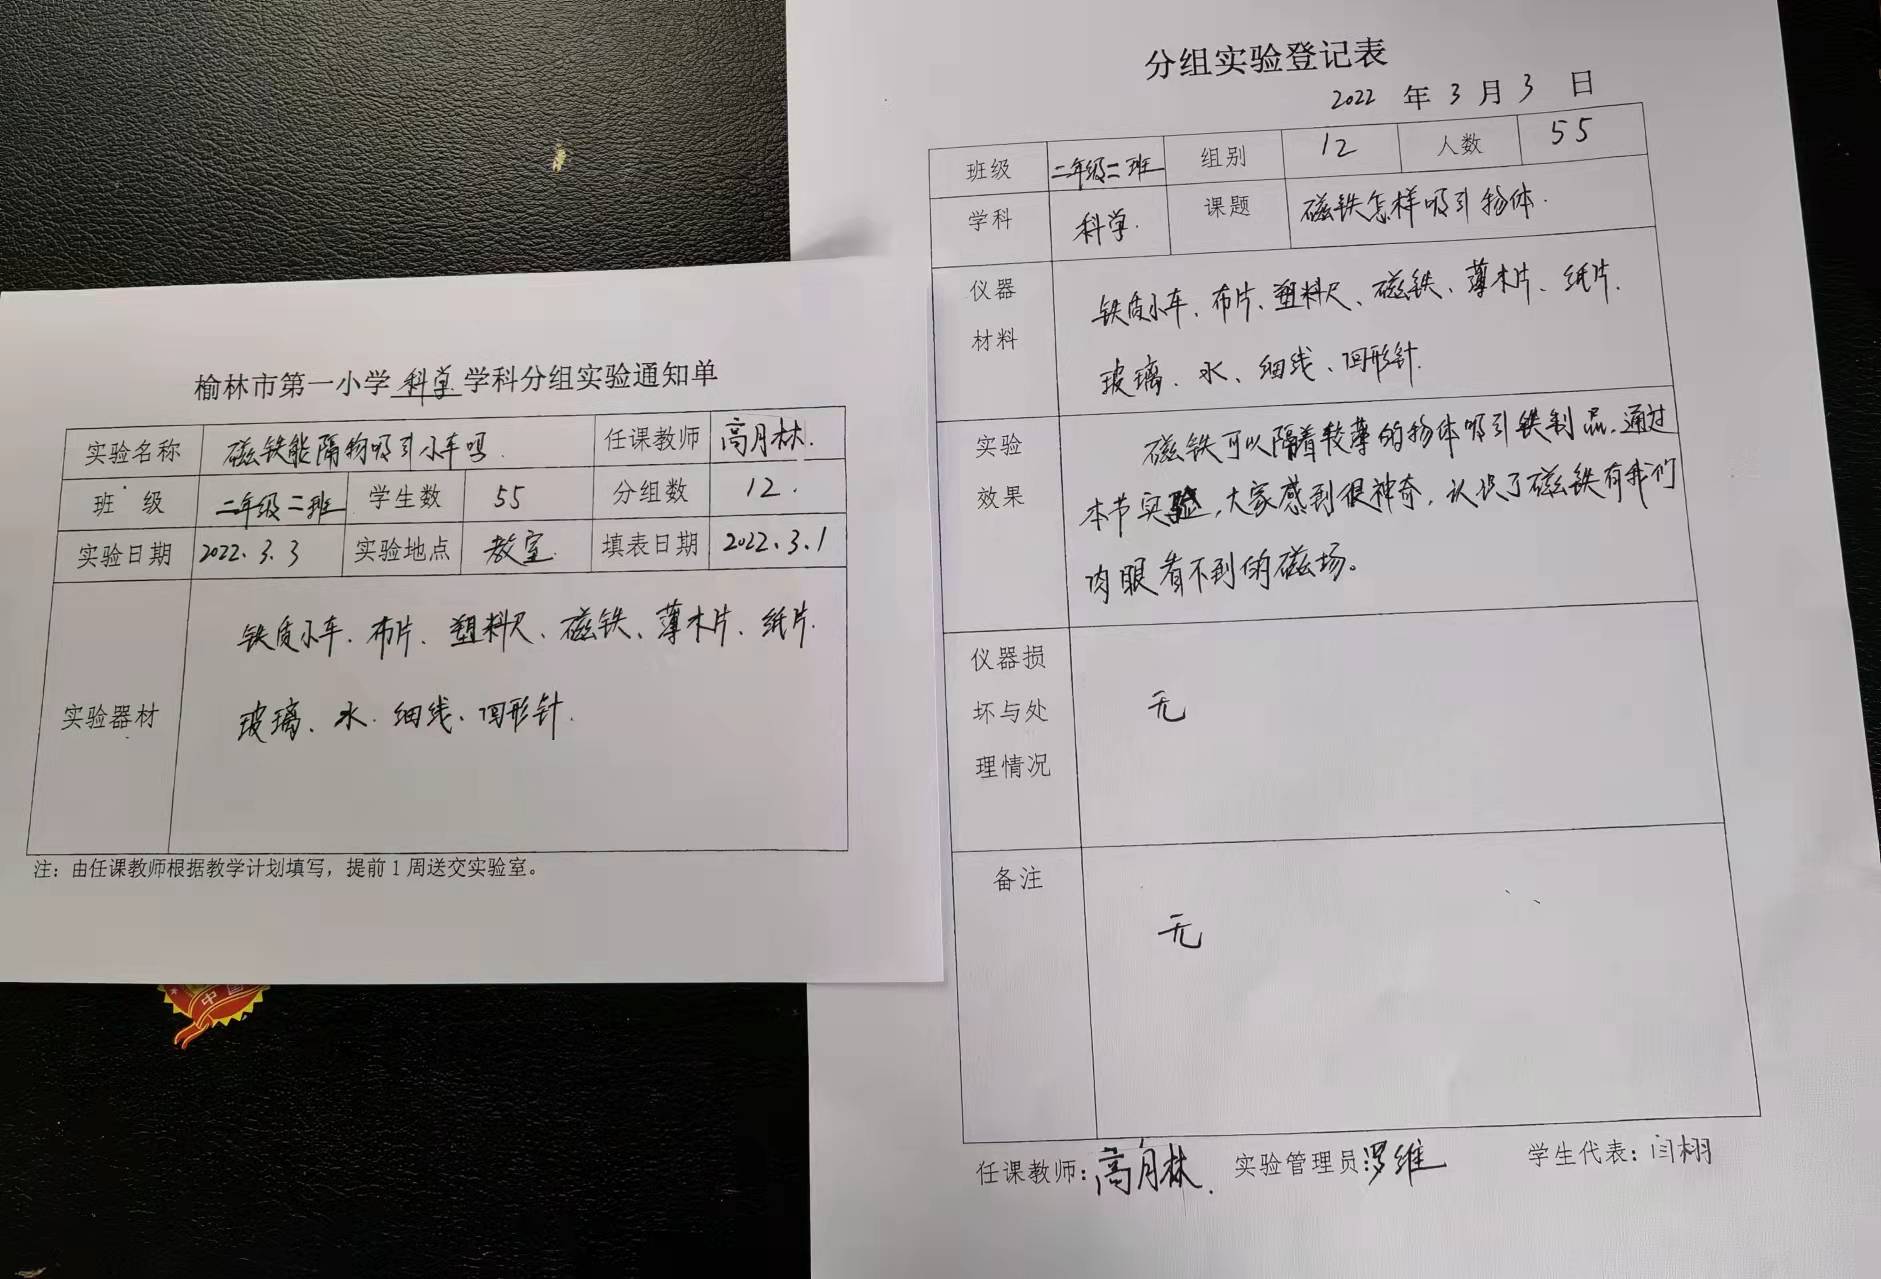 榆林市第一小学 科学 学科分组实验通知单
实验名称 磁铁能隔物吸引小车吗. 任课教师 高月林.
班 级 二年级二班 学生数 55 分组数 12.
实验日期 2022.3.3 实验地点 教室. 填表日期 2022.3.1
实验器材
铁质小车、布片、塑料尺、磁铁、薄木片、纸片.
玻璃、水、细线、回形针.
注：由任课教师根据教学计划填写，提前1周送交实验室。
中国
分组实验登记表
2022 年 3 月 3 日
班级 二年级二班 组别 12 人数 55
学科 科学. 课题 磁铁怎样吸引物体.
仪器
材料
铁质小车、布片、塑料尺、磁铁、薄木片、纸片.
玻璃、水、细线、回形针.
实验
效果
磁铁可以隔着较薄的物体吸引铁制品.通过
本节实验,大家感到很神奇,认识了磁铁有我们
肉眼看不到的磁场。
仪器损
坏与处
理情况
无
备注
无
任课教师:高月林. 实验管理员:罗维 学生代表:闫栩